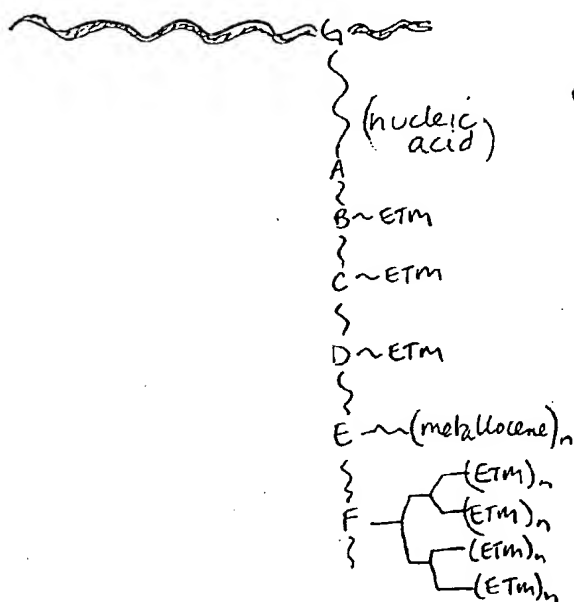 G
(nucleic
acid)
A
B~ETM
C~ETM
D~ETM
E~(metallocene)n
(ETM)n
F
(ETM)n
(ETM)n
(ETM)n